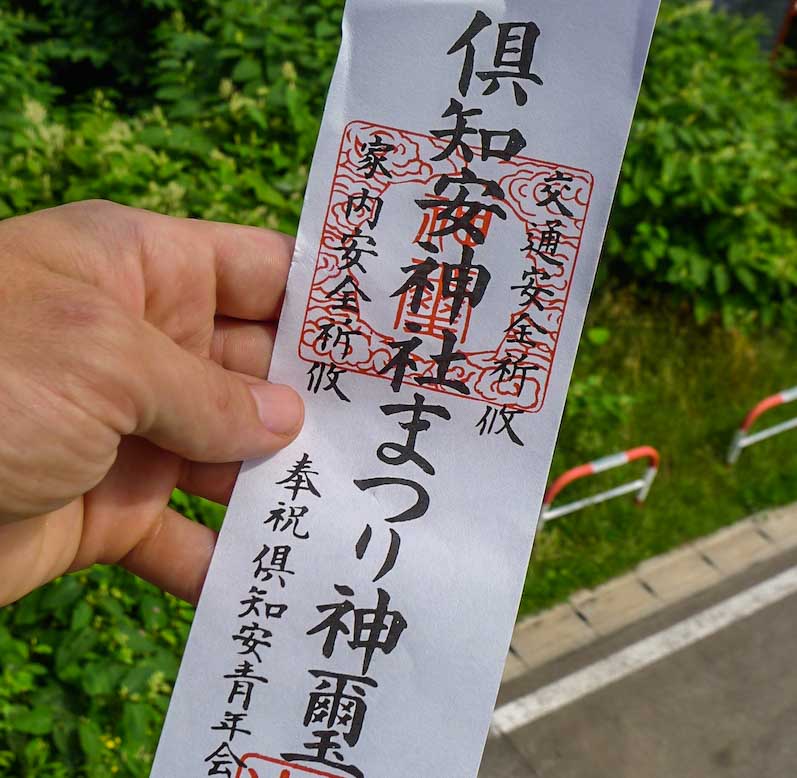 交通安全祈攸
倶知安神社まつり神璽
神璽
家内安全祈攸
奉祝 倶知安青年会